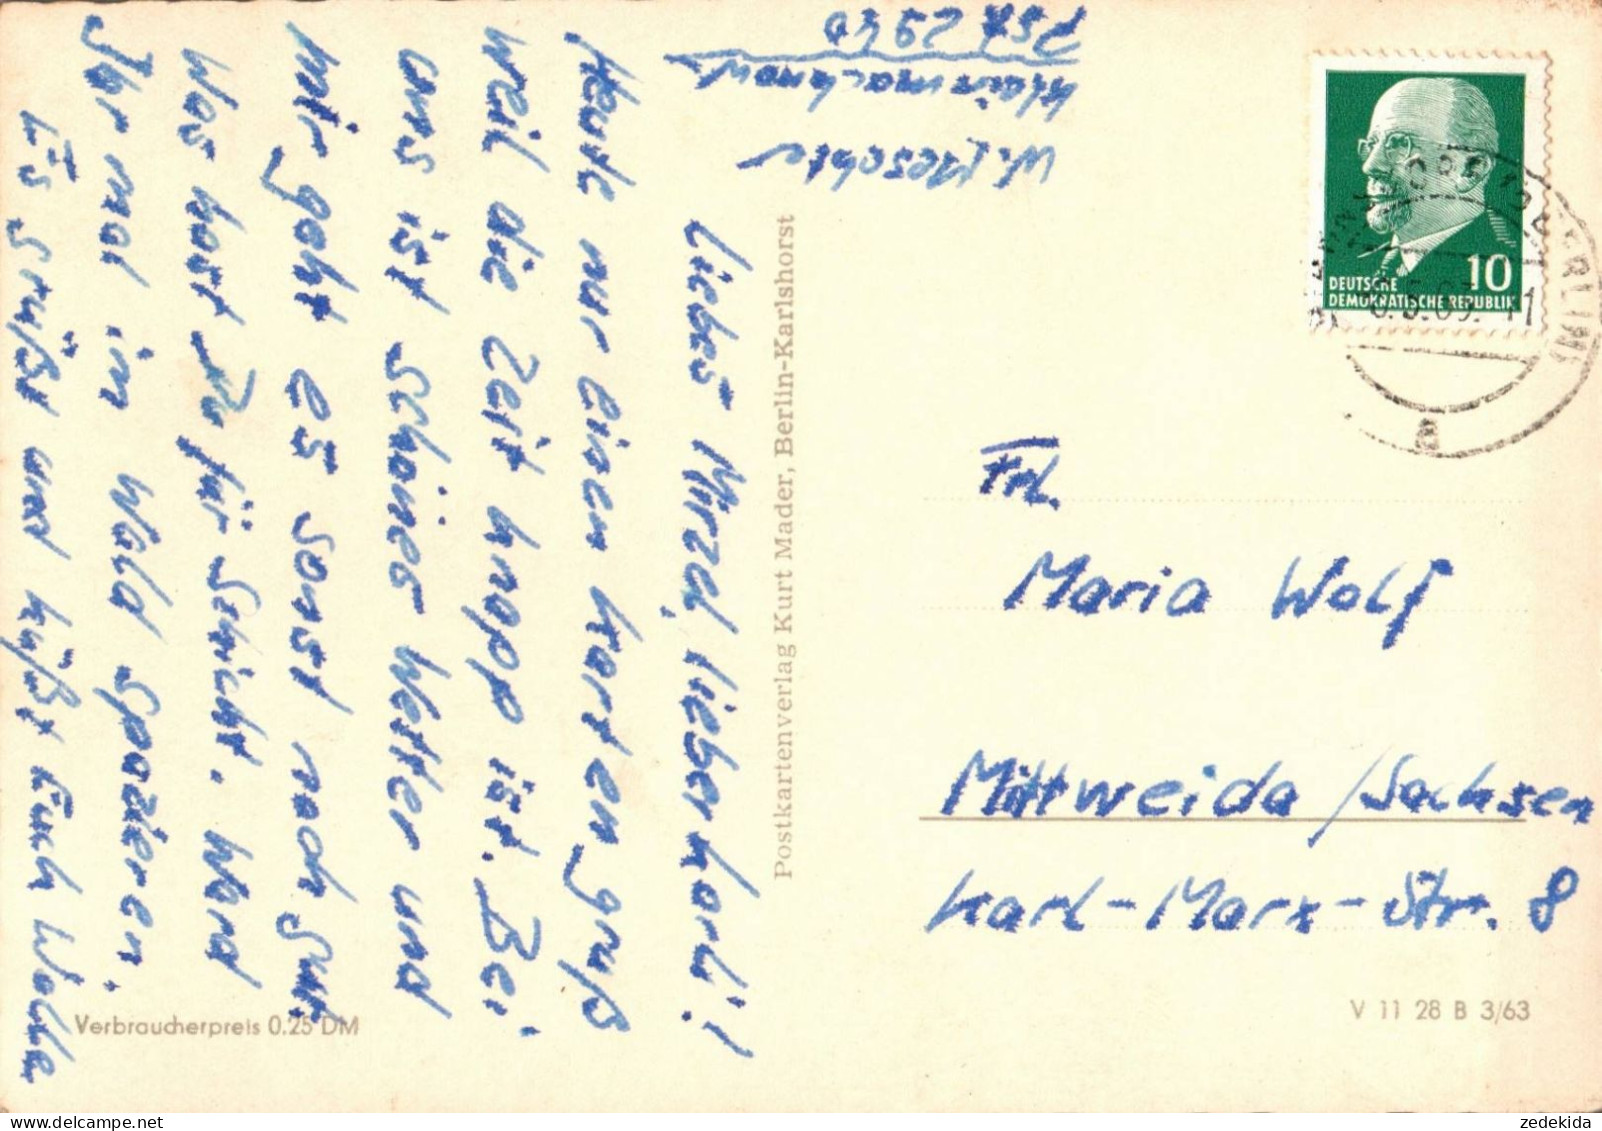 W. Meschter
Kleinmachnow
PSF 29 40
Liebes Mirzel, lieber Karli!
Heute nur einen Kartengruß
weil die Zeit knapp ist. Bei
uns ist schönes Wetter und
mir geht es sonst noch gut.
Was hast Du für Schicht. Ward
Ihr mal im Wald spazieren.
Es grüßt und küßt Euch Wolle
Verbraucherpreis 0.25 DM
Postkartenverlag Kurt Mader, Berlin-Karlshorst
10
DEUTSCHE
DEMOKRATISCHE REPUBLIK
a
Frl.
Maria Wolf
Mittweida/Sachsen
Karl-Marx-Str. 8
V 11 28 B 3/63
zedekida